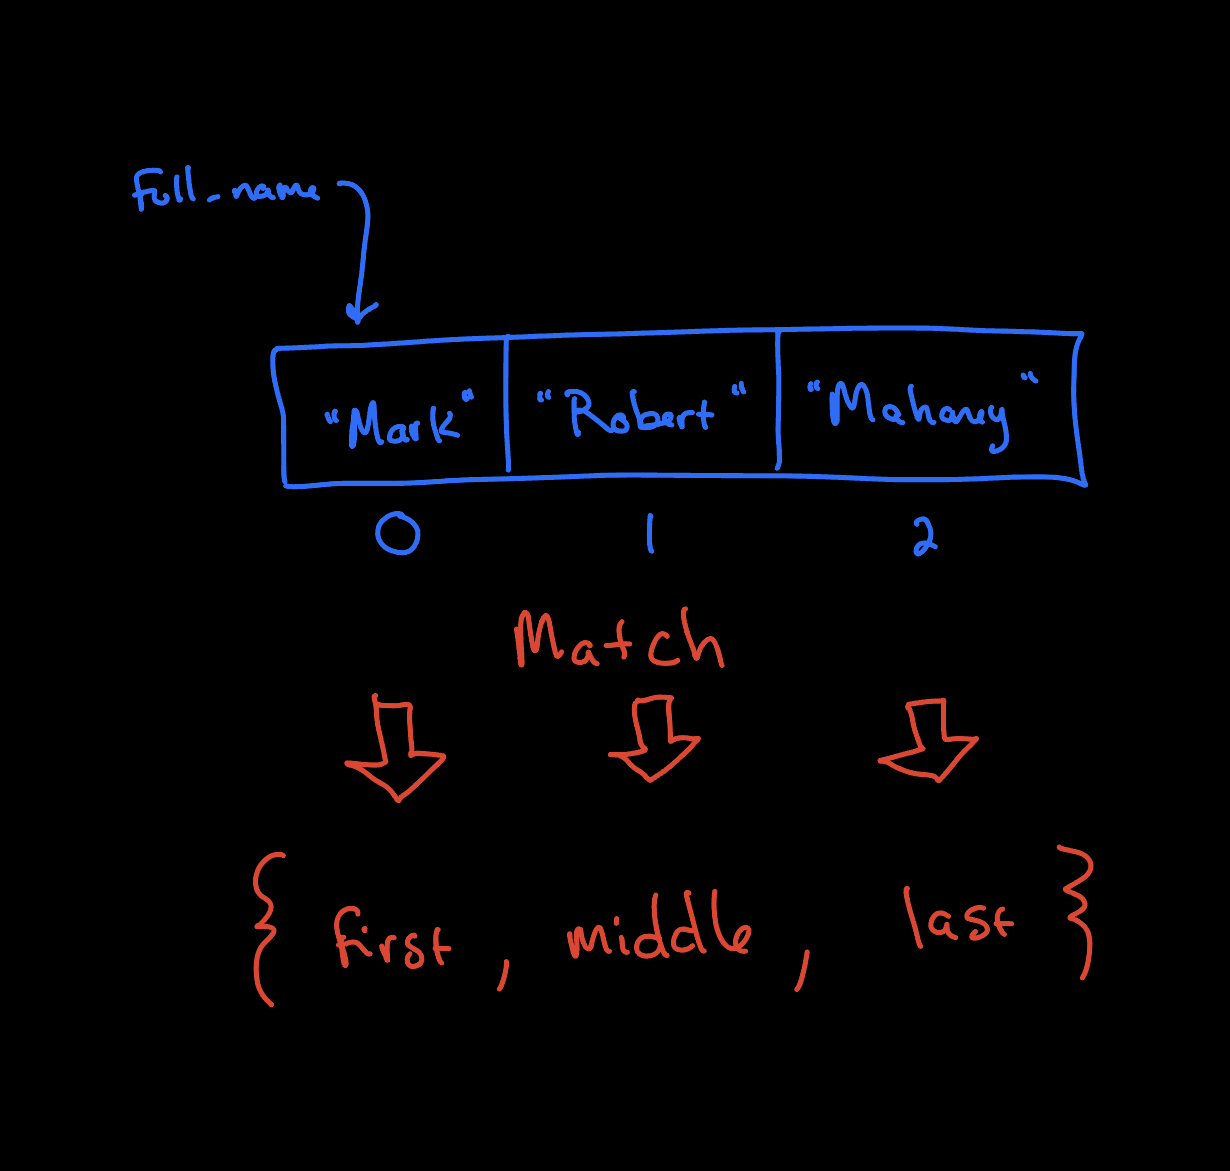 full_name
"Mark" "Robert" "Mahaney"
0 1 2
Match
{ first, middle, last }